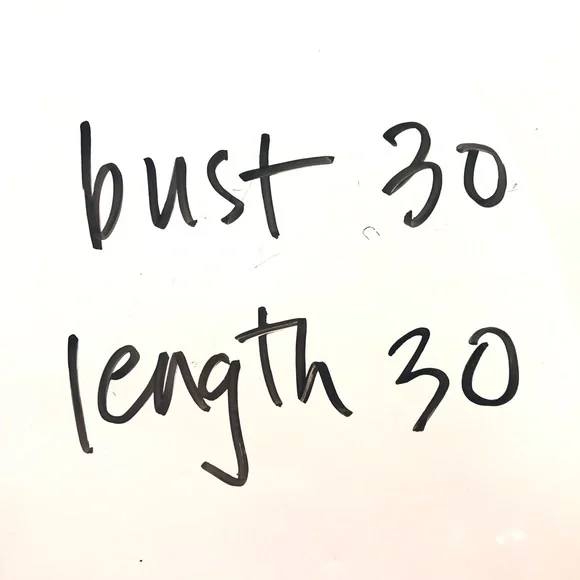 bust 30
length 30